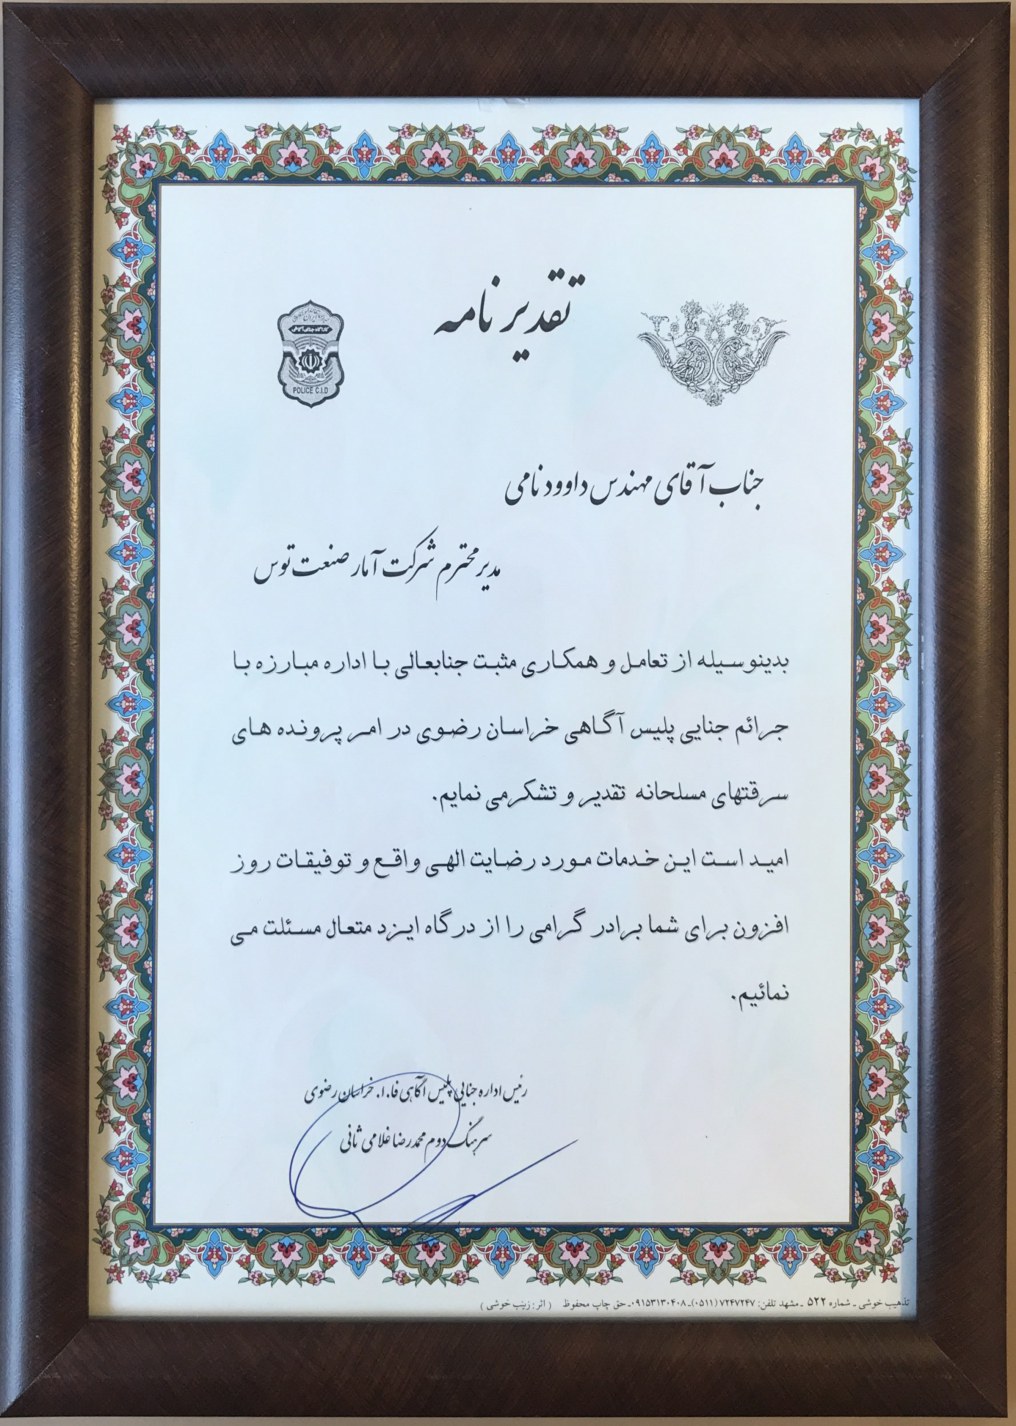 تقدیر نامه
POLICE C.I.D
جناب آقای مهندس داوود نامی
مدیر محترم شرکت آمار صنعت توس
بدینوسیله از تعامل و همکاری مثبت جنابعالی با اداره مبارزه با
جرائم جنایی پلیس آگاهی خراسان رضوی در امر پرونده های
سرقتهای مسلحانه تقدیر و تشکر می نمایم.
امید است این خدمات مورد رضایت الهی واقع و توفیقات روز
افزون برای شما برادر گرامی را از درگاه ایزد متعال مسئلت می
نمائیم.
رئیس اداره جنایی پلیس آگاهی فا.ا. خراسان رضوی
سرهنگ دوم محمدرضا غلامی ثانی
تذهیب خوشی ـ شماره ۵۲۲ ـ مشهد تلفن: ۷۲۴۷۲۴۷ (۰۵۱۱)ـ ۰۹۱۵۳۱۳۰۴۰۸ـ حق چاپ محفوظ ( اثر: زینب خوشی )